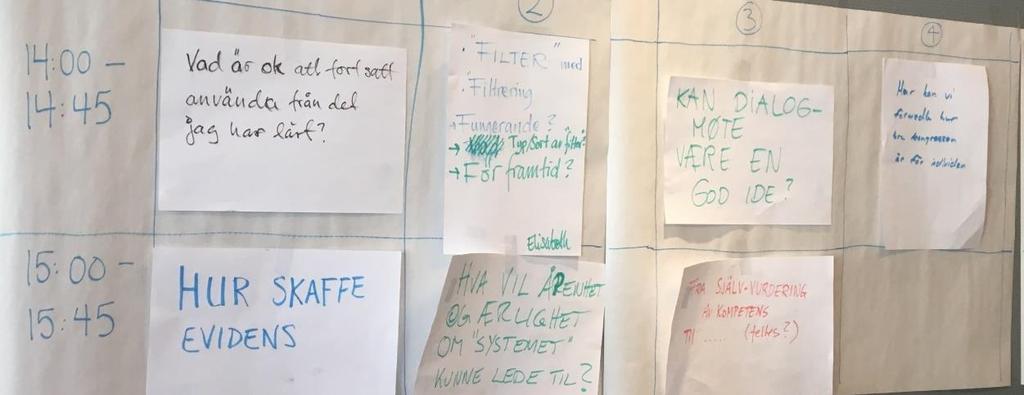 2
3
4
14:00 -
14:45
Vad är ok att fortsatt
använda från det
jag har lärt?
"FILTER" med
Filtrering
→ Fungerande?
→ Typ/Sort av filter?
→ För framtid?
Elisabeth
KAN DIALOG-
MØTE
VÆRE EN
GOD IDE?
Hur kan vi
är för individen
15:00 -
15:45
HUR SKAFFE
EVIDENS
HVA VIL ÅPENHET
OG ÆRLIGHET
OM "SYSTEMET"
KUNNE LEDE TIL?
FRA SJÄLV-VURDERING
AV KOMPETENS
TIL ..... (felles?)